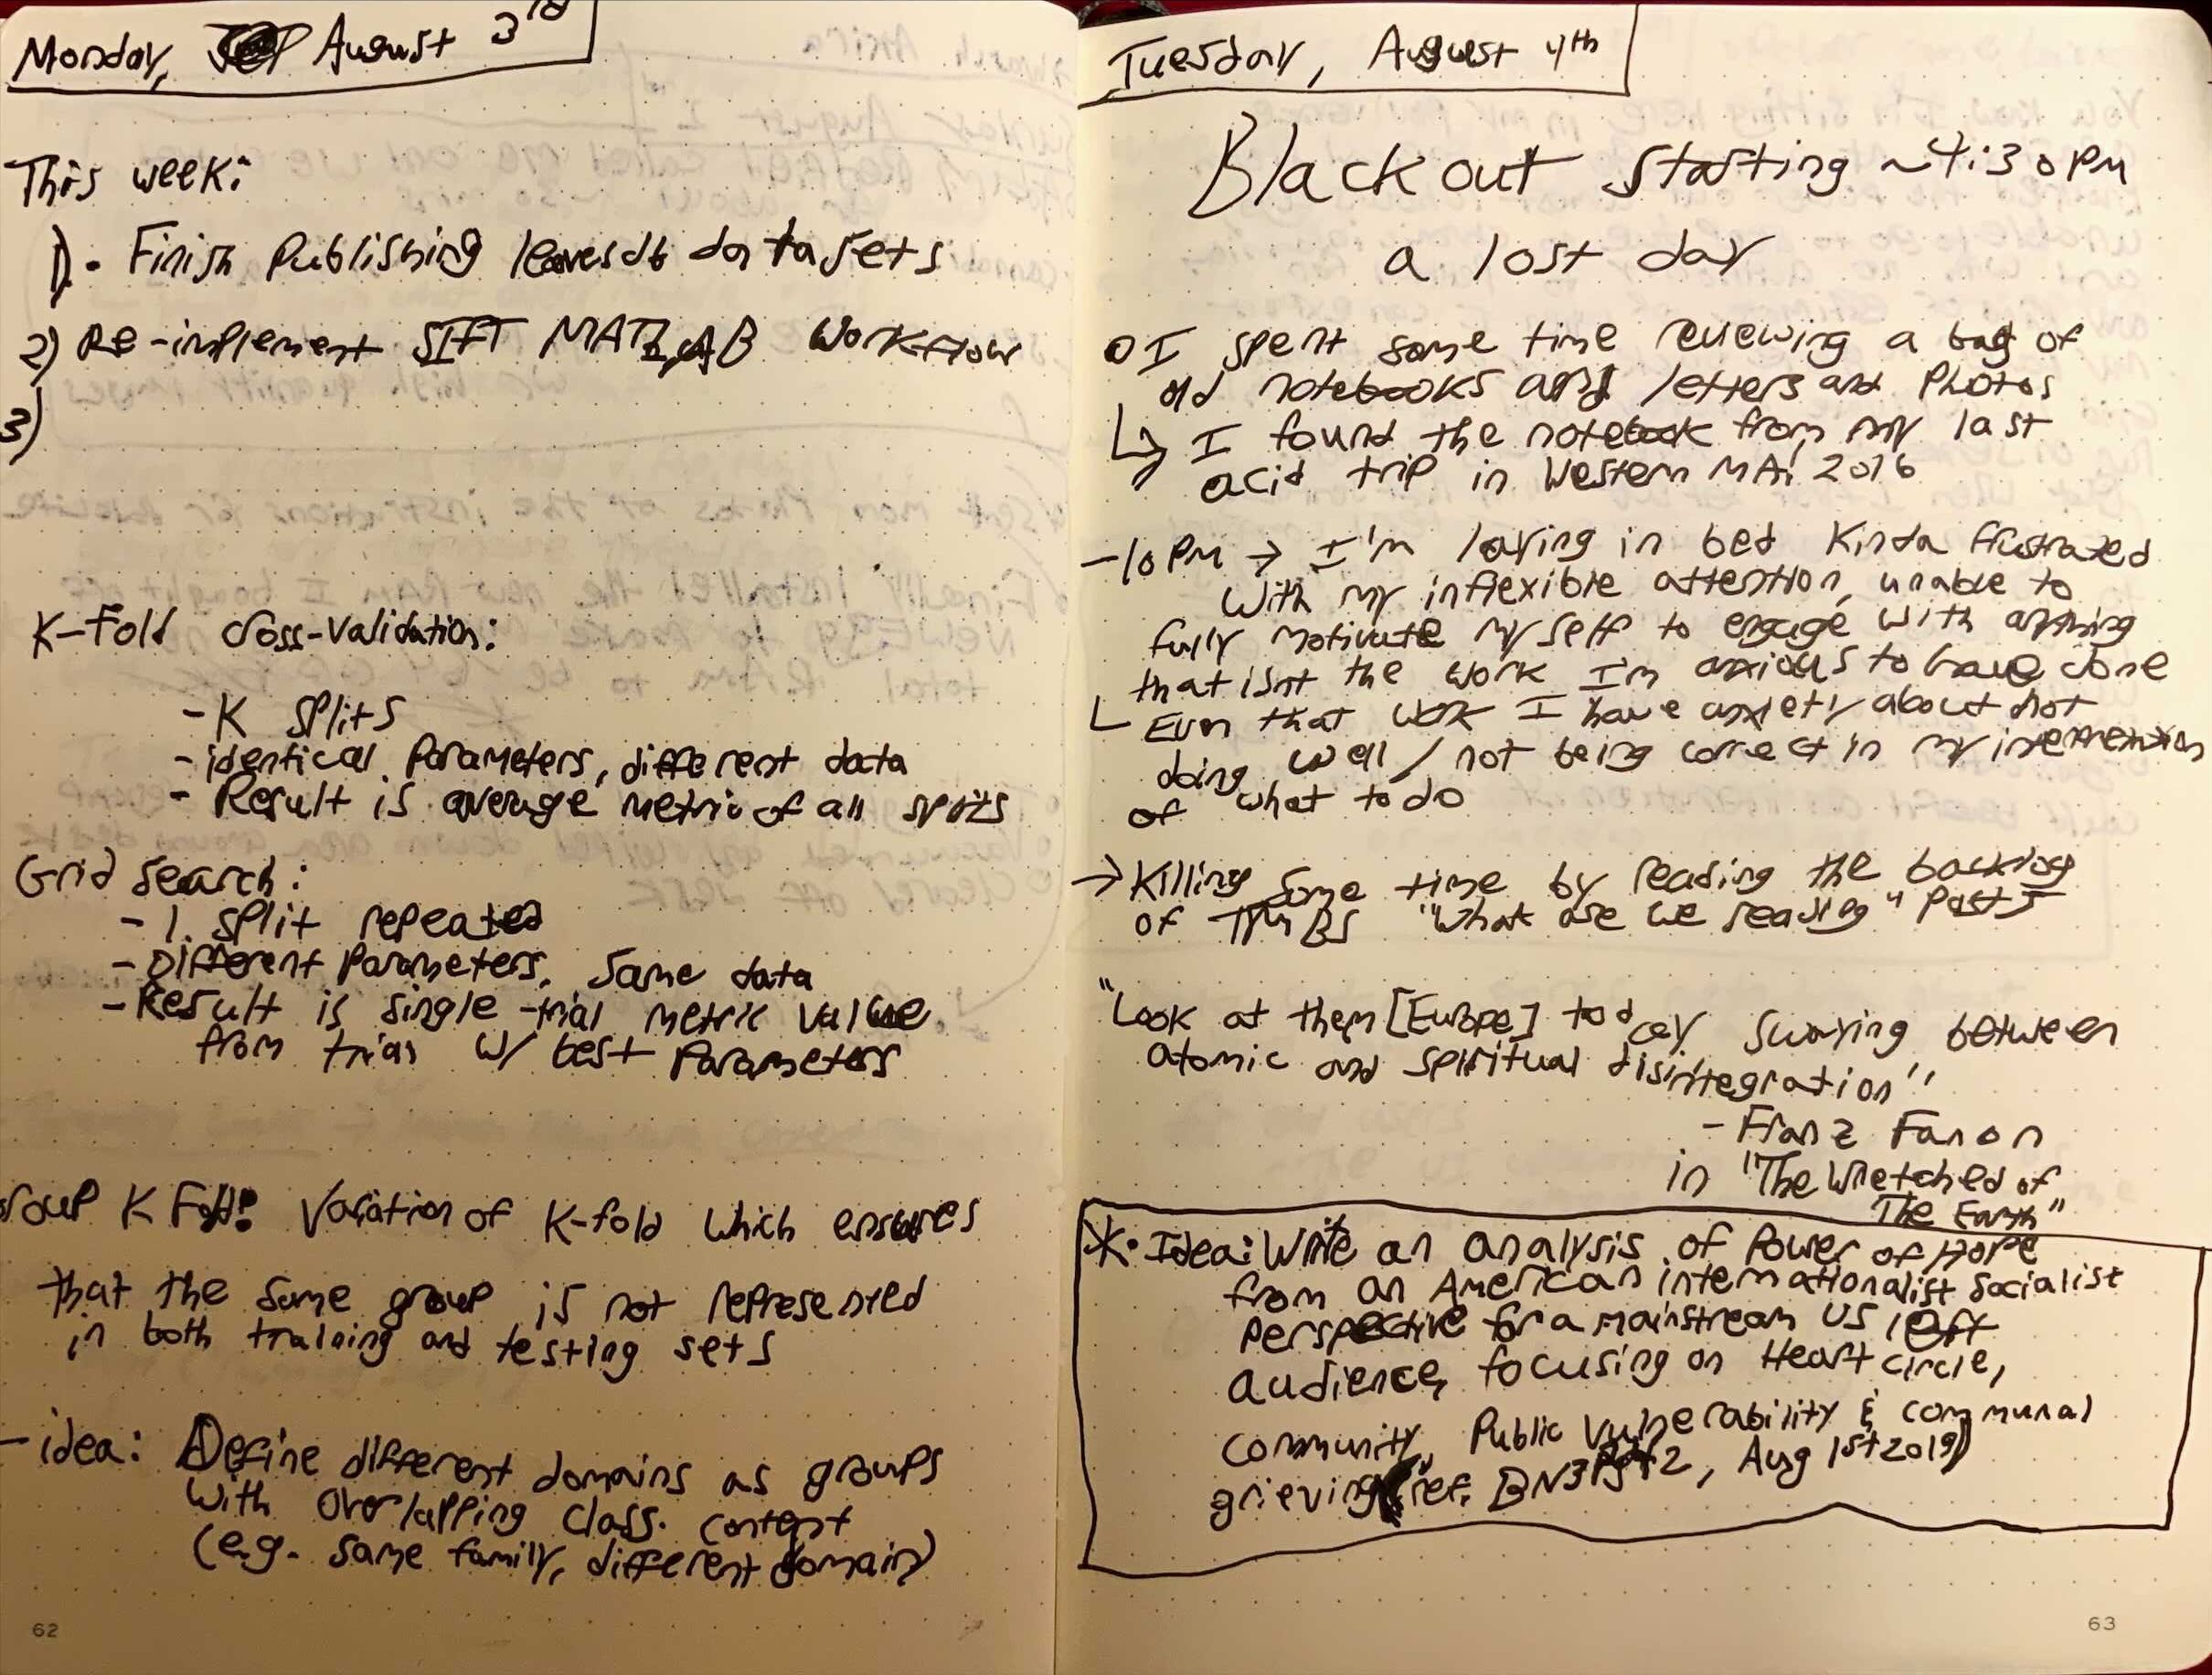 Monday, August 3rd
This week:
1). Finish Publishing leavesdb datasets
2) Re-implement SIFT MATLAB Workflow
3)
K-Fold Cross-Validation:
- K splits
- identical Parameters, different data
- Result is average metric of all splits
Grid Search:
- 1 split repeated
- Different Parameters, same data
- Result is single-trial metric value
from trial w/ best Parameters
Group K Fold: Variation of K-fold which ensures
that the same group is not represented
in both training and testing sets
- idea: Define different domains as groups
with overlapping class content
(e.g. same family, different domain)
62
Tuesday, August 4th
Blackout starting ~4:30 PM
a lost day
o I spent some time reviewing a bag of
old notebooks and letters and Photos
↳ I found the notebook from my last
acid trip in Western MA! 2016
-10 PM → I'm laying in bed Kinda frustrated
with my inflexible attention, unable to
fully motivate myself to engage with anything
that isnt the work I'm anxious to have done
↳ Even that work I have anxiety about not
doing well / not being correct in my interpretation
of what to do
→ Killing some time by reading the backlog
of TMBS "What are we reading" Posts
"Look at them [Europe] today swaying between
atomic and spiritual disintegration"
- Franz Fanon
in "The Wretched of
The Earth"
* • Idea: Write an analysis of Power of Hope
from an American internationalist socialist
perspective for a mainstream US left
audience, focusing on Heart circle,
community, Public Vulnerability & communal
grieving (ref. BN3 Pg 72, Aug 1st 2019)
63